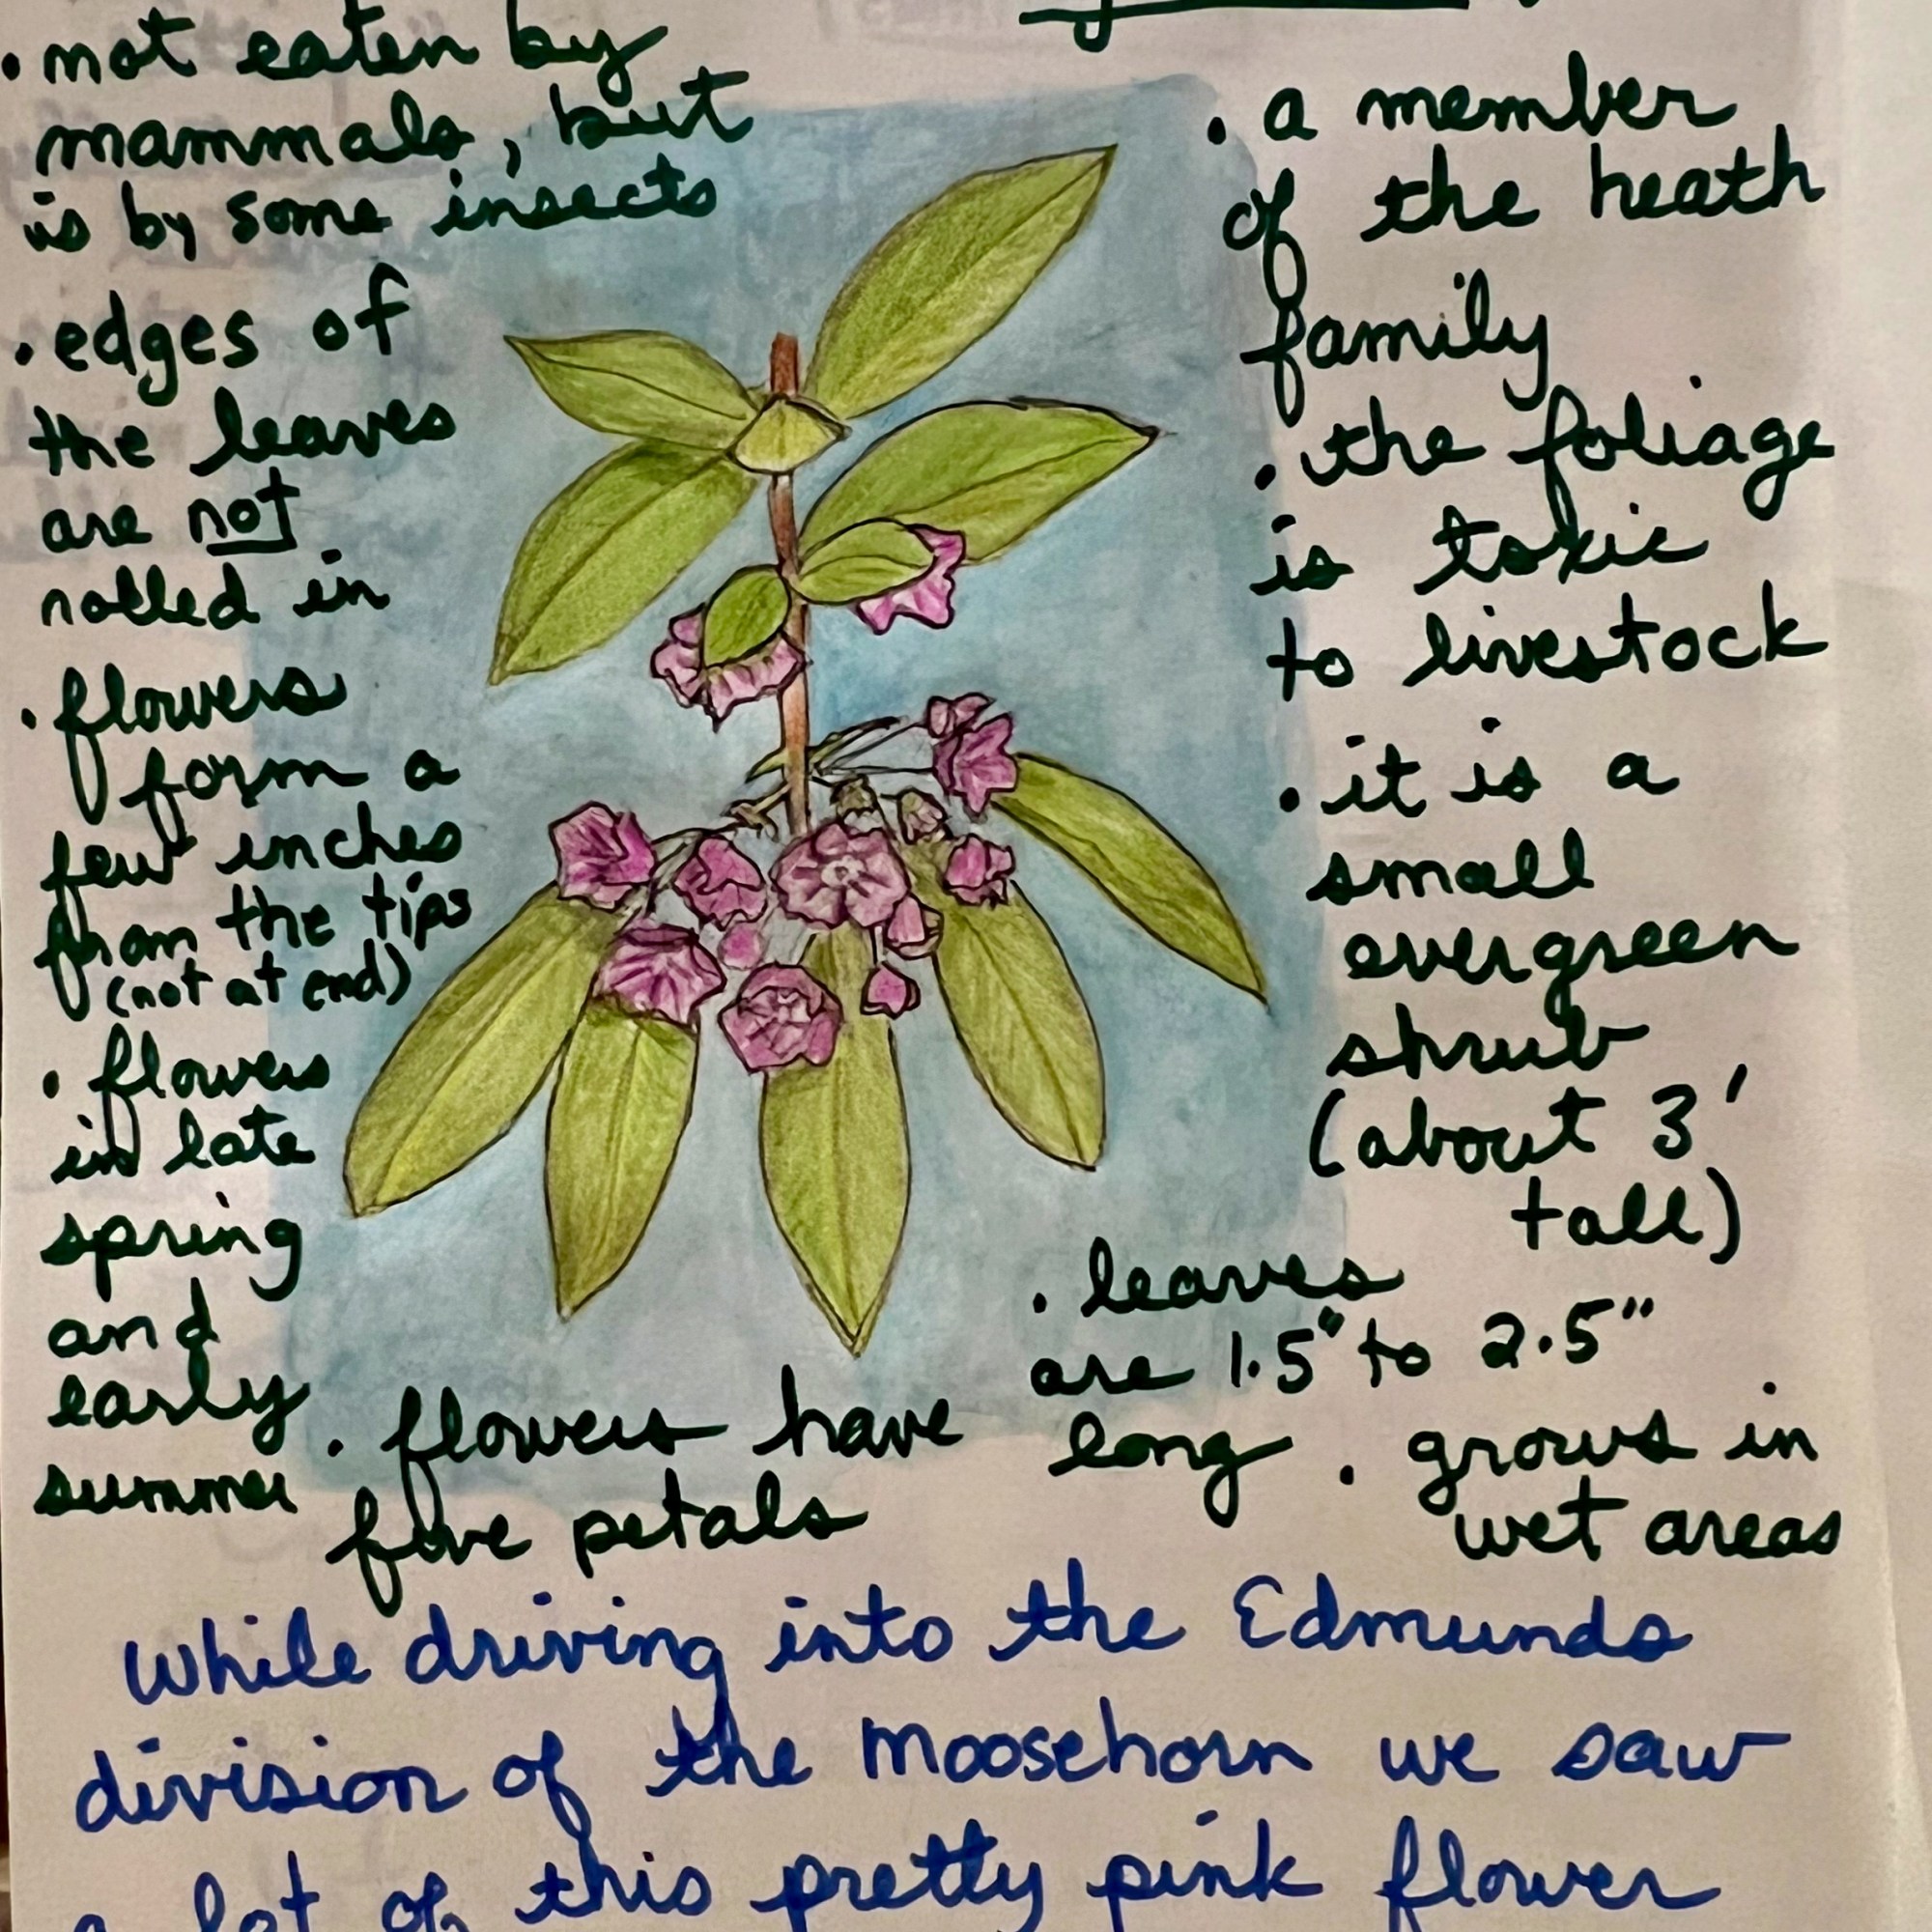 • not eaten by
mammals, but
is by some insects
• edges of
the leaves
are not
rolled in
• flowers
form a
few inches
from the tips
(not at end)
• flowers
in late
spring
and
early
summer
• flowers have
five petals
• a member
of the heath
family
• the foliage
is toxic
to livestock
• it is a
small
evergreen
shrub
(about 3'
tall)
• leaves
are 1.5" to 2.5"
long
• grows in
wet areas
While driving into the Edmunds
division of the Moosehorn we saw
a lot of this pretty pink flower